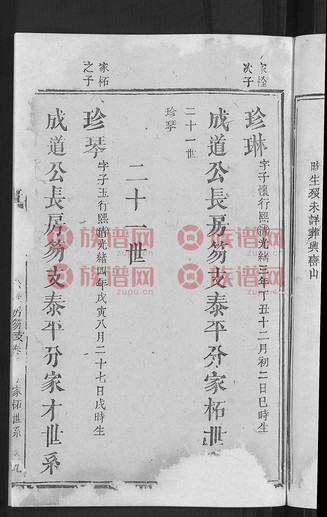 時生歿未詳葬興寧山
次子
珍琳
字子懷行熙譜光緒三年丁丑十二月初二日巳時生
成道公長房笏支泰平分家柘世
二十一世
珍琴
二十世
家柘之子
珍琴
字子玉行熙譜光緒四年戊寅八月二十七日戌時生
成道公長房笏支泰平分家才世系
笏支
家柘世系
九
族谱网
zupu.cn
族谱网
zupu.cn
族谱网
zupu.cn
族谱网
zupu.cn